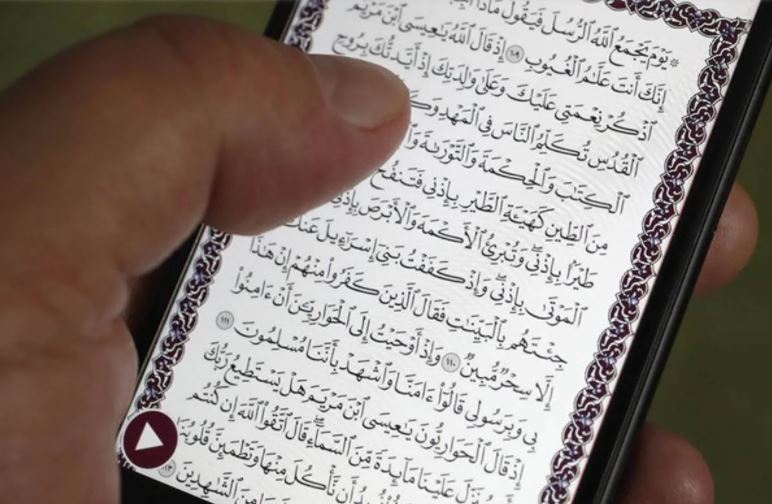 ۞ يَوْمَ يَجْمَعُ ٱللَّهُ ٱلرُّسُلَ فَيَقُولُ مَاذَآ
إِنَّكَ أَنتَ عَلَّٰمُ ٱلْغُيُوبِ ١٠٩ إِذْ قَالَ ٱللَّهُ يَٰعِيسَى ٱبْنَ مَرْيَمَ
ٱذْكُرْ نِعْمَتِى عَلَيْكَ وَعَلَىٰ وَٰلِدَتِكَ إِذْ أَيَّدتُّكَ بِرُوحِ
ٱلْقُدُسِ تُكَلِّمُ ٱلنَّاسَ فِى ٱلْمَهْدِ
ٱلْكِتَٰبَ وَٱلْحِكْمَةَ وَٱلتَّوْرَىٰةَ
مِنَ ٱلطِّينِ كَهَيْـَٔةِ ٱلطَّيْرِ بِإِذْنِى فَتَنفُخُ
طَيْرًۢا بِإِذْنِى وَتُبْرِئُ ٱلْأَكْمَهَ وَٱلْأَبْرَصَ
ٱلْمَوْتَىٰ بِإِذْنِى وَإِذْ كَفَفْتُ بَنِىٓ إِسْرَٰٓءِيلَ
جِئْتَهُم بِٱلْبَيِّنَٰتِ فَقَالَ ٱلَّذِينَ كَفَرُوا۟ مِنْهُمْ إِنْ هَٰذَآ
إِلَّا سِحْرٌ مُّبِينٌ ١١٠ وَإِذْ أَوْحَيْتُ إِلَى ٱلْحَوَارِيِّـۧنَ أَنْ ءَامِنُوا۟
بِى وَبِرَسُولِى قَالُوٓا۟ ءَامَنَّا وَٱشْهَدْ بِأَنَّنَا مُسْلِمُونَ ١١١
إِذْ قَالَ ٱلْحَوَارِيُّونَ يَٰعِيسَى ٱبْنَ مَرْيَمَ هَلْ يَسْتَطِيعُ رَبُّكَ
يُنَزِّلَ عَلَيْنَا مَآئِدَةً مِّنَ ٱلسَّمَآءِ قَالَ ٱتَّقُوا۟ ٱللَّهَ إِن كُنتُم
نُرِيدُ أَن نَّأْكُلَ مِنْهَا وَتَطْمَئِنَّ قُلُوبُنَا
مِنَ ٱلشَّٰهِدِينَ ١١٣